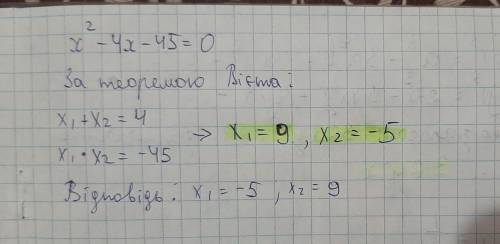 x² - 4x - 45 = 0
За теоремою Вієта:
x₁ + x₂ = 4
x₁ · x₂ = -45
→ x₁ = 9, x₂ = -5
Відповідь: x₁ = -5; x₂ = 9